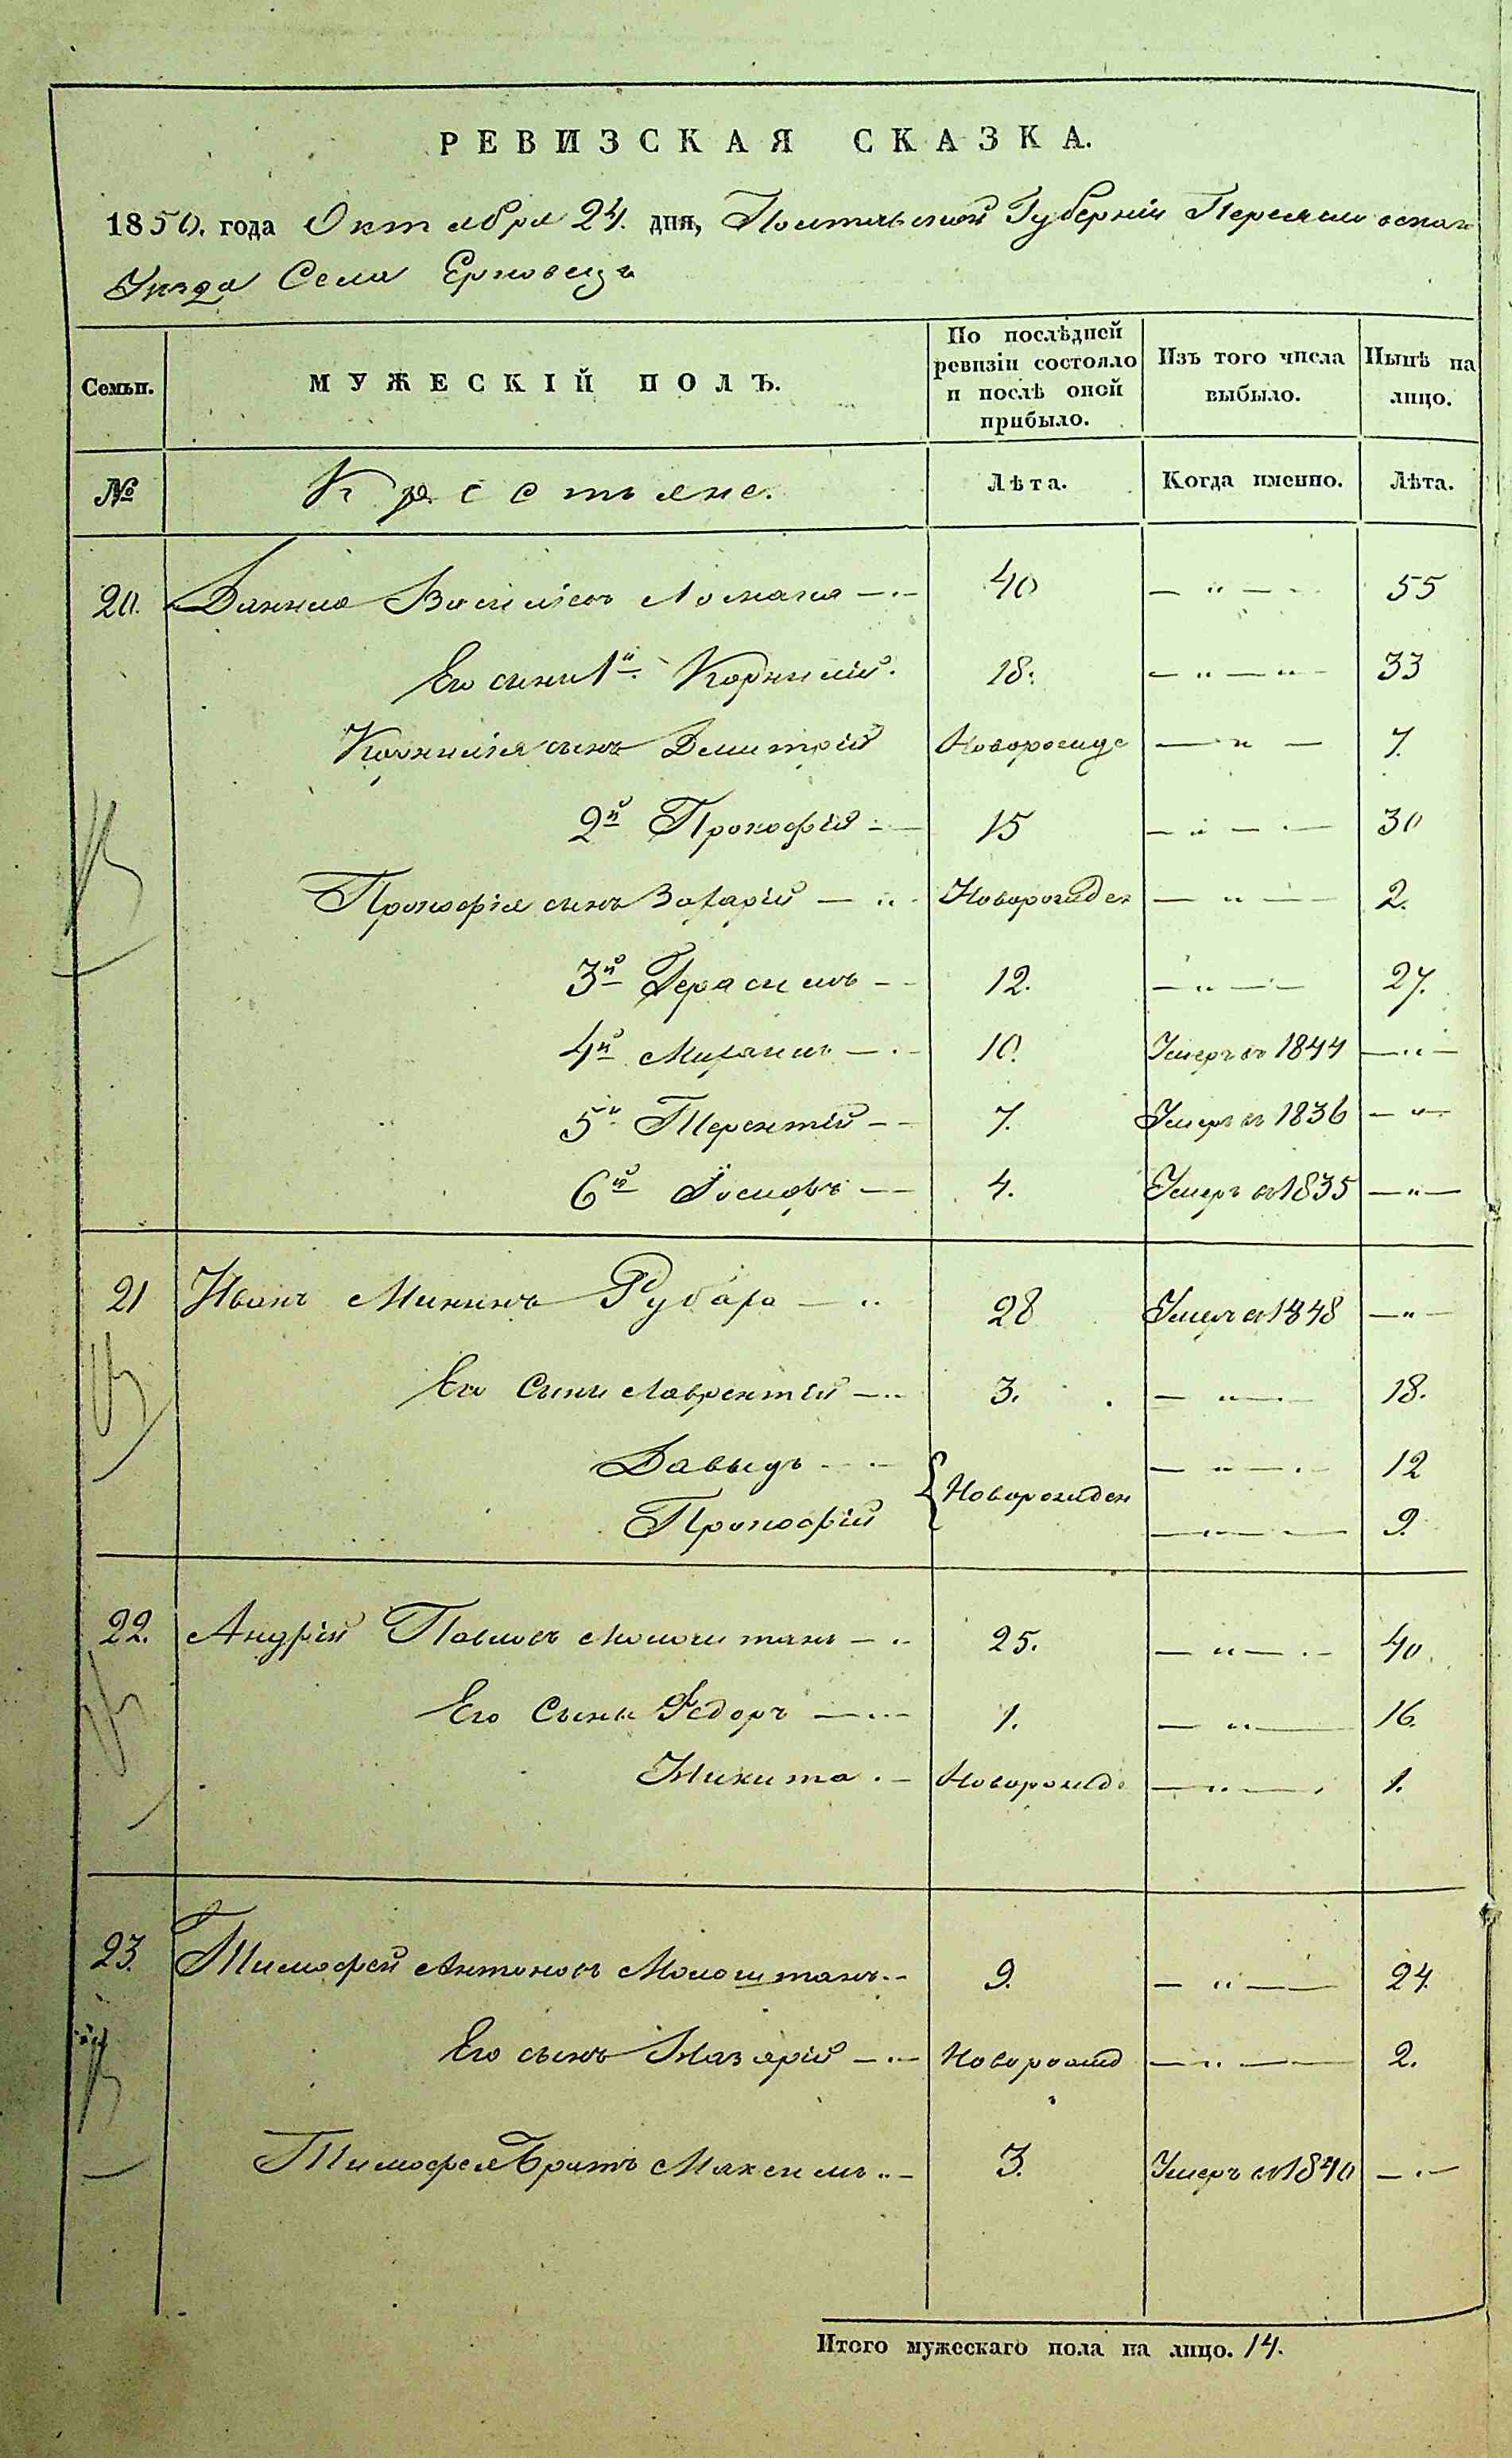 РЕВИЗСКАЯ СКАЗКА.
1850. года Октября 24. дня, Полтавской Губерніи Переяславскаго
Уезда Села Ерковецъ
Семьи. МУЖЕСКІЙ ПОЛЪ. По послѣдней ревизіи состояло и послѣ оной прибыло. Изъ того числа выбыло. Нынѣ на лицо.
№ Крестьяне. Лѣта. Когда именно. Лѣта.
20. Данило Васильевъ 40 — „ — 55
Его сыны 1й Корнилій. 18. — „ — 33
Корнилія сынъ Димитрій Новорожде — „ — 7.
2й Прокофій — 15 — „ — 30
Прокофія сынъ Захарій — „ Новорожден — „ — 2.
3й Герасимъ — 12. — „ — 27.
4й Михаилъ — 10. Умеръ въ 1844 — „ —
5й Терентій — 7. Умеръ въ 1836 — „ —
6й Іосифъ — 4. Умеръ въ 1835 — „ —
21 Иванъ Мининъ Рубаха — „ 28 Умеръ въ 1848 — „ —
Его Сыны Лаврентій — 3. — „ — 18.
Давыдъ — { Новорожден — „ — 12
Прокофій — „ — 9.
22. Андрій Павловъ Молоштанъ — „ 25. — „ — 40.
Его Сыны Федоръ — 1. — „ — 16.
Никита. — Новорожд — „ — 1.
23. Тимофей Антоновъ Молоштанъ. — 9. — „ — 24.
Его сынъ Назарій — Новорожд — „ — 2.
Тимофея Братъ Максимъ — 3. Умеръ въ 1840 — „ —
Итого мужескаго пола на лицо. 14.